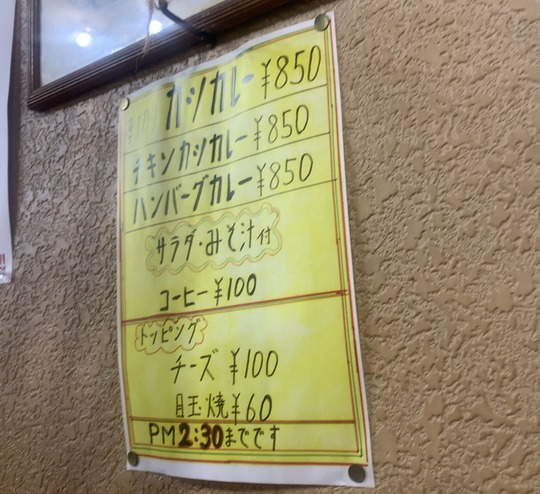 カツカレー ¥850
チキンカツカレー ¥850
ハンバーグカレー ¥850
サラダ・みそ汁付
コーヒー ¥100
トッピング
チーズ ¥100
目玉焼 ¥60
PM2:30までです